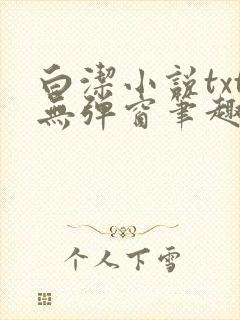 白潔小説txt
無彈窗筆趣
个人下雪